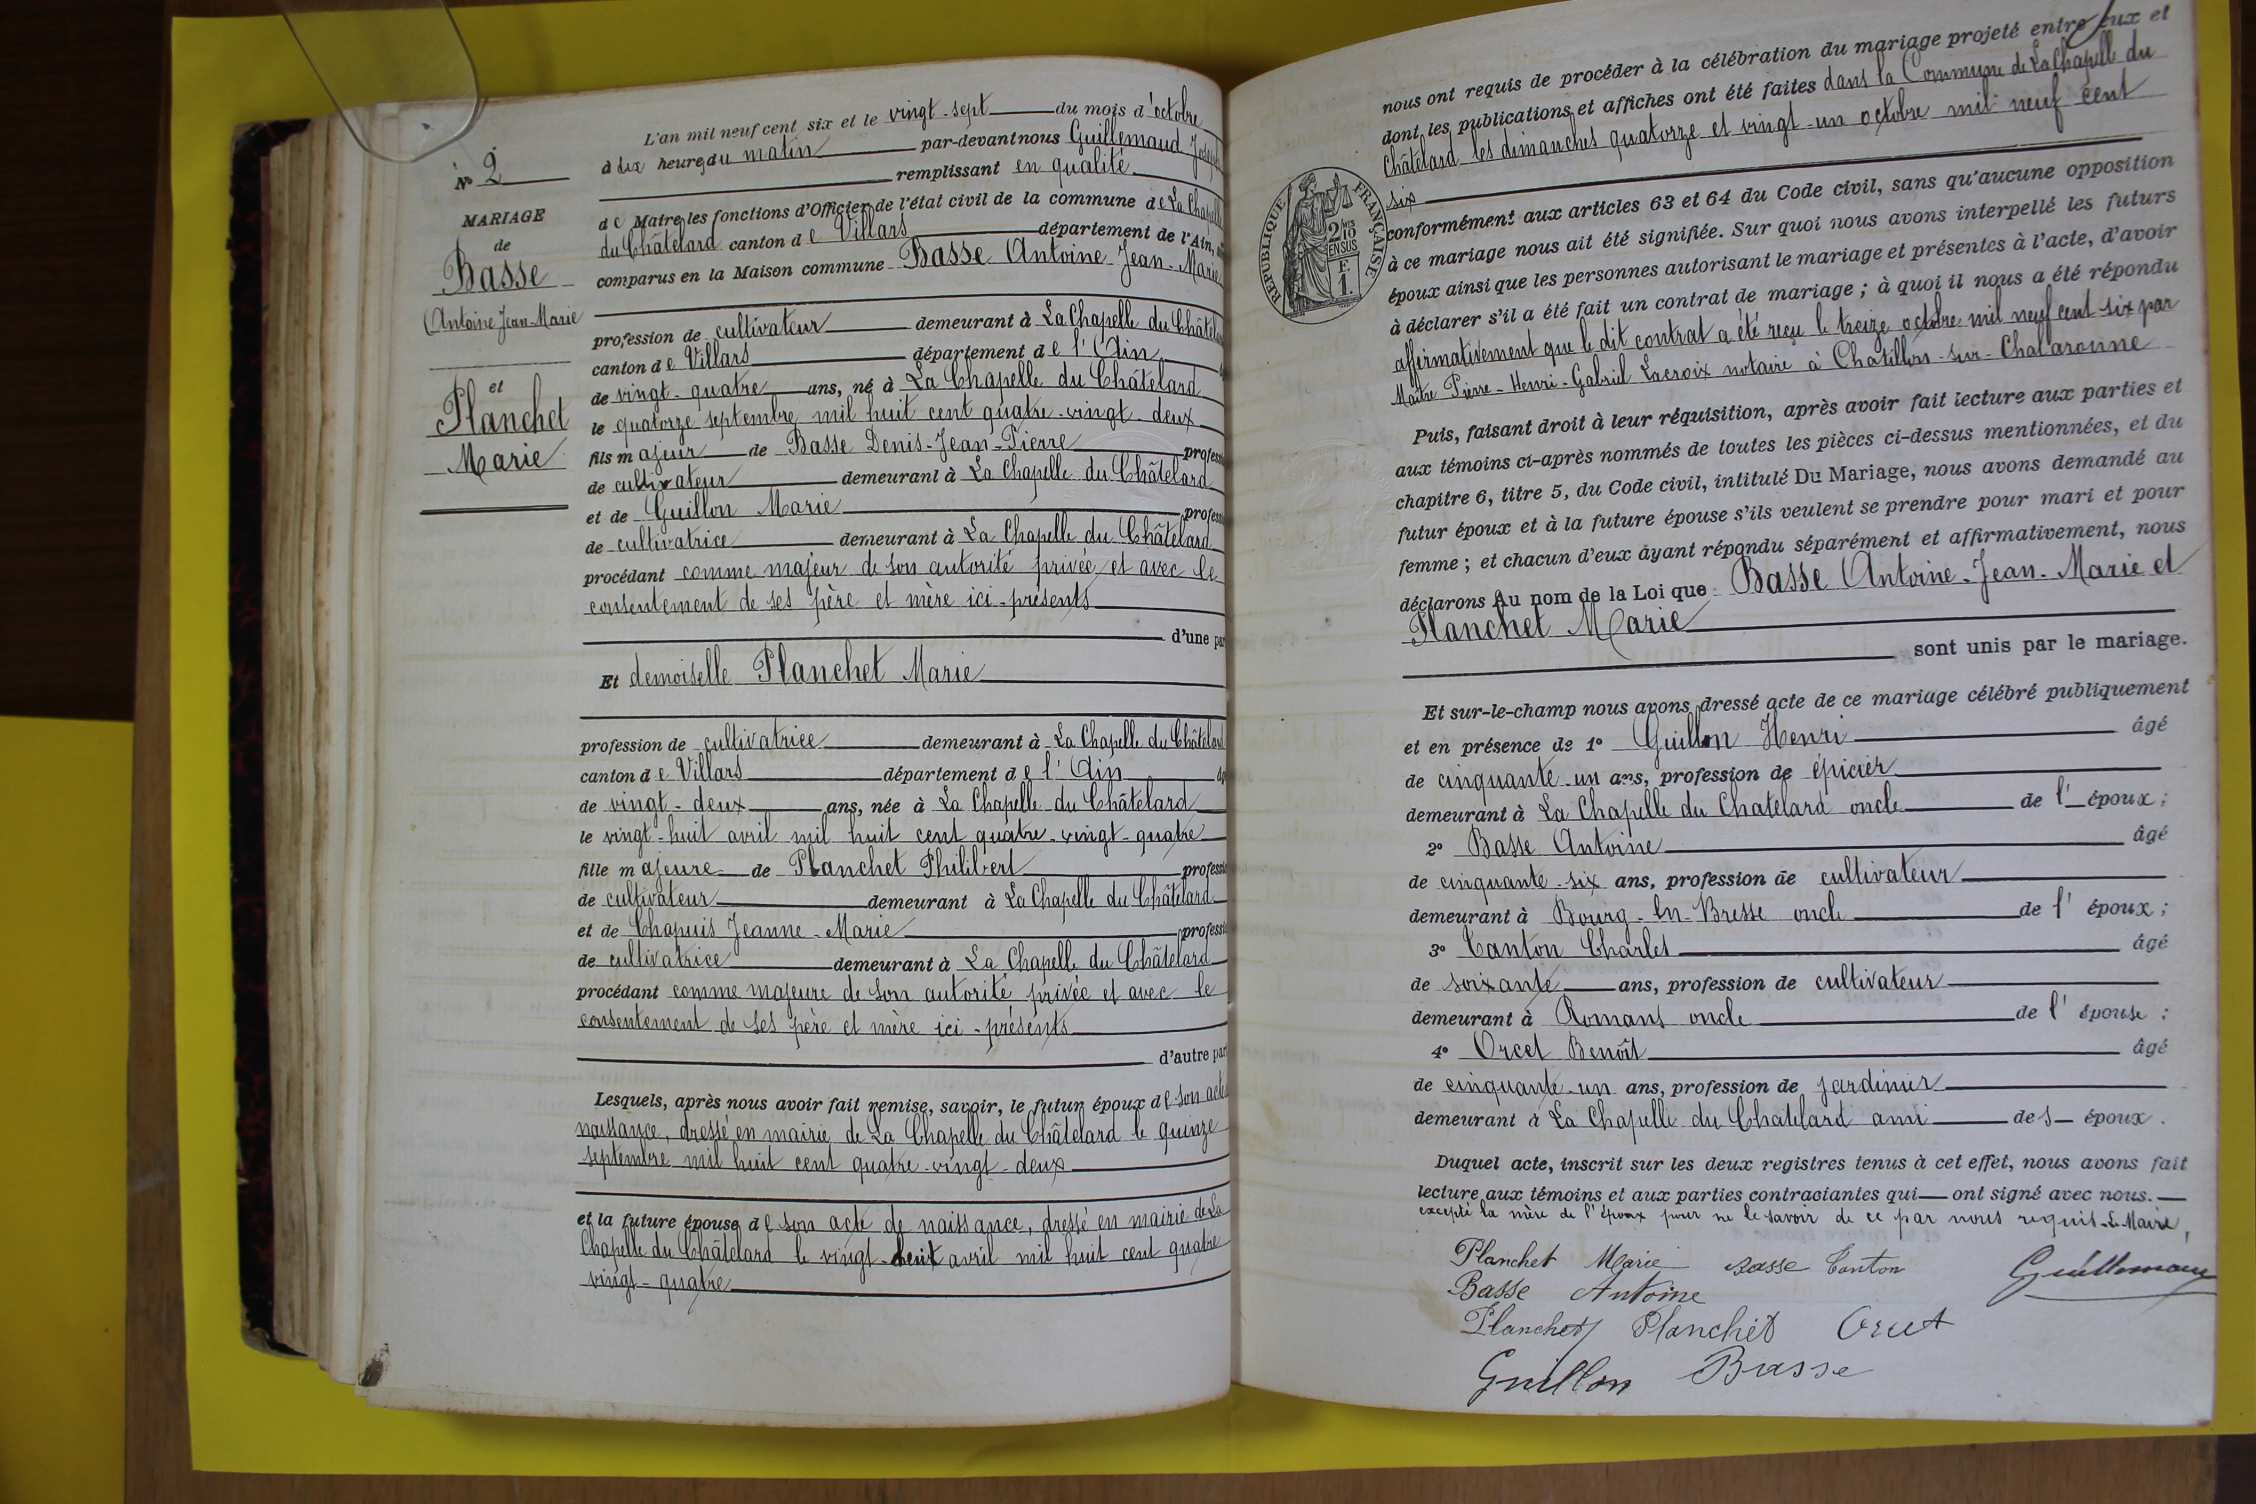 L'an mil neuf cent six et le vingt-sept du mois d'octobre
à dix heures du matin par-devant nous Guillemaud Joseph
remplissant en qualité
de Maire les fonctions d'Officier de l'état civil de la commune de La Chapelle
du Châtelard canton de Villars département de l'Ain,
comparus en la Maison commune Basse Antoine-Jean-Marie
N° 2
MARIAGE
de
Basse
Antoine Jean-Marie
et
Planchet
Marie
profession de cultivateur demeurant à La Chapelle du Châtelard
canton de Villars département de l'Ain
de vingt-quatre ans, né à La Chapelle du Châtelard
le quatorze septembre mil huit cent quatre-vingt-deux
fils majeur de Basse Denis-Jean-Pierre profess
de cultivateur demeurant à La Chapelle du Châtelard
et de Guillon Marie profess
de cultivatrice demeurant à La Chapelle du Châtelard
procédant comme majeur de son autorité privée et avec le
consentement de ses père et mère ici-présents
d'une par
Et demoiselle Planchet Marie
profession de cultivatrice demeurant à La Chapelle du Châtelard
canton de Villars département de l'Ain
de vingt-deux ans, née à La Chapelle du Châtelard
le vingt-huit avril mil huit cent quatre-vingt-quatre
fille majeure de Planchet Philibert professi
de cultivateur demeurant à La Chapelle du Châtelard
et de Chapuis Jeanne-Marie professi
de cultivatrice demeurant à La Chapelle du Châtelard
procédant comme majeure de son autorité privée et avec le
consentement de ses père et mère ici-présents
d'autre par
Lesquels, après nous avoir fait remise, savoir, le futur époux de son acte
naissance, dressé en mairie de La Chapelle du Châtelard le quinze
septembre mil huit cent quatre-vingt-deux
et la future épouse de son acte de naissance, dressé en mairie de La
Chapelle du Châtelard le vingt-huit avril mil huit cent quatre
vingt-quatre
nous ont requis de procéder à la célébration du mariage projeté entre eux et
dont les publications et affiches ont été faites dans la Commune de La Chapelle du
Châtelard les dimanches quatorze et vingt-un octobre mil neuf cent
six
RÉPUBLIQUE FRANÇAISE
2/10
EN SUS
F.
1.
conformément aux articles 63 et 64 du Code civil, sans qu'aucune opposition
à ce mariage nous ait été signifiée. Sur quoi nous avons interpellé les futurs
époux ainsi que les personnes autorisant le mariage et présentes à l'acte, d'avoir
à déclarer s'il a été fait un contrat de mariage ; à quoi il nous a été répondu
affirmativement que le dit contrat a été reçu le treize octobre mil neuf cent six par
Maître Pierre-Henri-Gabriel Lacroix notaire à Chatillon-sur-Chalaronne
Puis, faisant droit à leur réquisition, après avoir fait lecture aux parties et
aux témoins ci-après nommés de toutes les pièces ci-dessus mentionnées, et du
chapitre 6, titre 5, du Code civil, intitulé Du Mariage, nous avons demandé au
futur époux et à la future épouse s'ils veulent se prendre pour mari et pour
femme ; et chacun d'eux ayant répondu séparément et affirmativement, nous
déclarons Au nom de la Loi que Basse Antoine-Jean-Marie et
Planchet Marie
sont unis par le mariage.
Et sur-le-champ nous avons dressé acte de ce mariage célébré publiquement
et en présence de 1° Guillon Henri âgé
de cinquante-un ans, profession de épicier
demeurant à La Chapelle du Chatelard oncle de l' époux ;
2° Basse Antoine âgé
de cinquante-six ans, profession de cultivateur
demeurant à Bourg-en-Bresse oncle de l' époux ;
3° Canton Charles âgé
de soixante ans, profession de cultivateur
demeurant à Romans oncle de l' épouse ;
4° Orcet Benoît âgé
de cinquante-un ans, profession de jardinier
demeurant à La Chapelle du Chatelard ami des époux.
Duquel acte, inscrit sur les deux registres tenus à cet effet, nous avons fait
lecture aux témoins et aux parties contractantes qui ont signé avec nous.
excepté la mère de l'époux pour ne le savoir de ce par nous requis. Le Maire,
Planchet Marie Basse Canton Guillemaud
Basse Antoine
Planchet Planchet Orcet
Guillon Basse